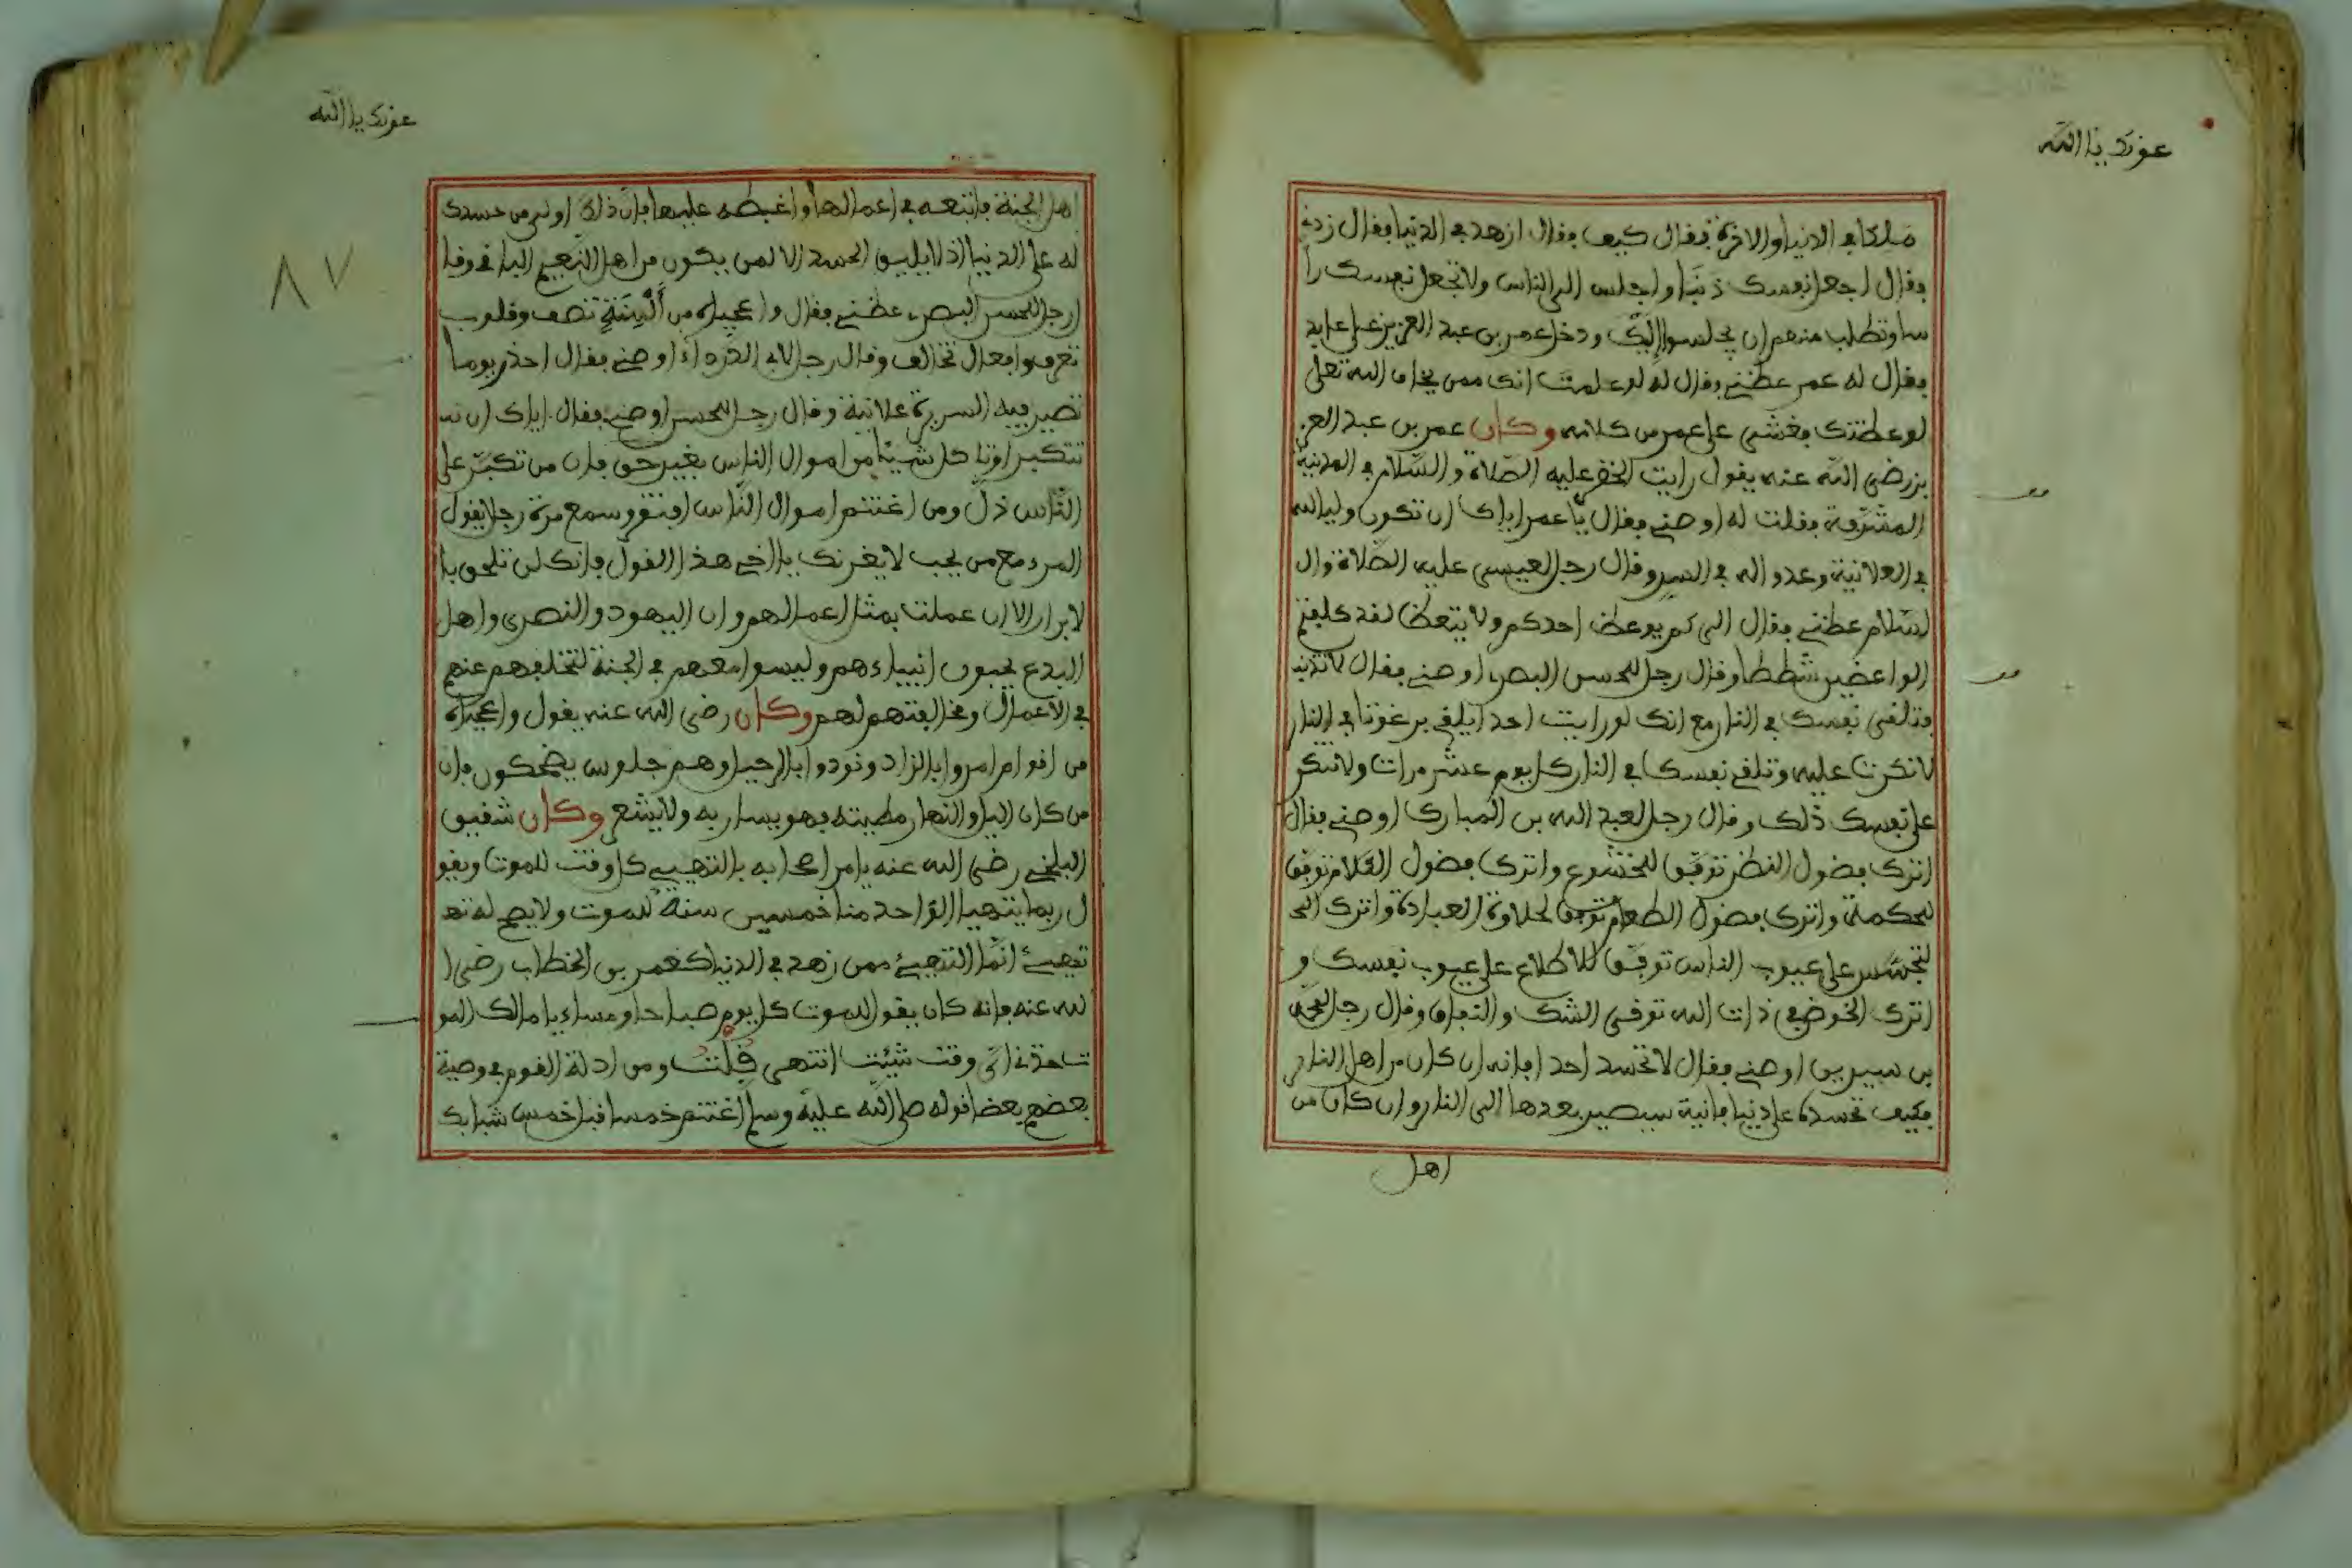 عونك يا الله
ملكا في الدنيا والاخرة فقال كيف فقال ازهد في الدنيا فقال زدني
فقال اجعل نفسك ذنبا واجلس الى الناس ولا تجعل نفسك را
سا وتطلب منهم ان يجلسوا إليك ودخل عمر بن عبد العزيز على عابد
فقال له عمر عظني فقال له لو علمت انك ممن يخاف الله تعلى
لوعظتك فغشي على عمر من كلامه وكان عمر بن عبد العز
يز رضي الله عنه يقول رايت الخضر عليه الصلاة والسلام في المدينة
المشرفة فقلت له اوصني فقال يا عمر اياك ان تكون وليا لله
في العلانية وعدوا له في السر وقال رجل لعيسى عليه الصلاة وال
لسلام عظني فقال الى كم يوعظ احدكم ولا يتعظ لقد كلفتم
الواعضين شططا وقال رجل للحسن البصري اوصني فقال لا تذنب
فتلقي نفسك في النار مع انك لو رايت احدا يلقي برغوثا في النار
لانكرت عليه وتلقي نفسك في النار كل يوم عشر مرات ولا تنكر
على نفسك ذلك وقال رجل لعبد الله بن المبارك اوصني فقال
اترك فضول النظر توفق للخشوع واترك فضول الكلام توفق
للحكمة واترك فضول الطعام توفق لحلاوة العبادة واترك الت
لتجسس على عيوب الناس توفق للاطلاع على عيوب نفسك و
اترك الخوض في ذات الله توقى الشك والنفاق وقال رجل لمحمد
بن سيرين اوصني فقال لا تحسد احدا فانه ان كان من اهل النار
فكيف تحسده على دنيا فانية سيصير بعدها الى النار وان كان من
اهل
عونك يا الله
٨٧
اهل الجنة فاتبعه في اعمالها واغبطه عليها فان ذلك اولى من حسدك
له على الدنيا اذ لا يليق الحسد الا لمن يكون من اهل النعيم الباقي وقا
ل رجل للحسن البصري عظني فقال واعجباه من ألسنة تصف وقلوب
تعرف وافعال تخالف وقال رجل لابي الدرداء اوصني فقال احذر يوما
تصير فيه السريرة علانية وقال رجل للحسن اوصني فقال اياك ان تتـ
تتكبر او تاكل شيئا من اموال الناس بغير حق فان من تكبر على
الناس ذل ومن اغتنم اموال الناس افتقر وسمع مرة رجلا يقول
المرء مع من يحب لا يغرنك يا اخي هذا القول فانك لن تلحق با
لابرار الا ان عملت بمثل اعمالهم وان اليهود والنصرى واهل
البدع يحبون انبياءهم وليسوا معهم في الجنة لتخلفهم عنهم
في الأعمال ومخالفتهم لهم وكان رضي الله عنه يقول واعجباه
من اقوام امروا بالزاد ونودوا بالرحيل وهم جلوس يضحكون فان
من كان اليل والنهار مطيته فهو يسار به ولا يشعر وكان شقيق
البلخي رضي الله عنه يامر اصحابه بالتهيئ كل وقت للموت ويقو
ل ربما يتهيا الواحد منا خمسين سنة للموت ولا يصح له تهـ
تهيئ انما التهيئ ممن زهد في الدنيا كعمر بن الخطاب رضي ا
لله عنه فانه كان يقول للموت كل يوم صباحا ومساء يا مالك المو
ت خذني اي وقت شئت انتهى قلت ومن ادلة القوم في وصية
بعضهم بعضا قوله صلى الله عليه وسلم اغتنم خمسا قبل خمس شبابك